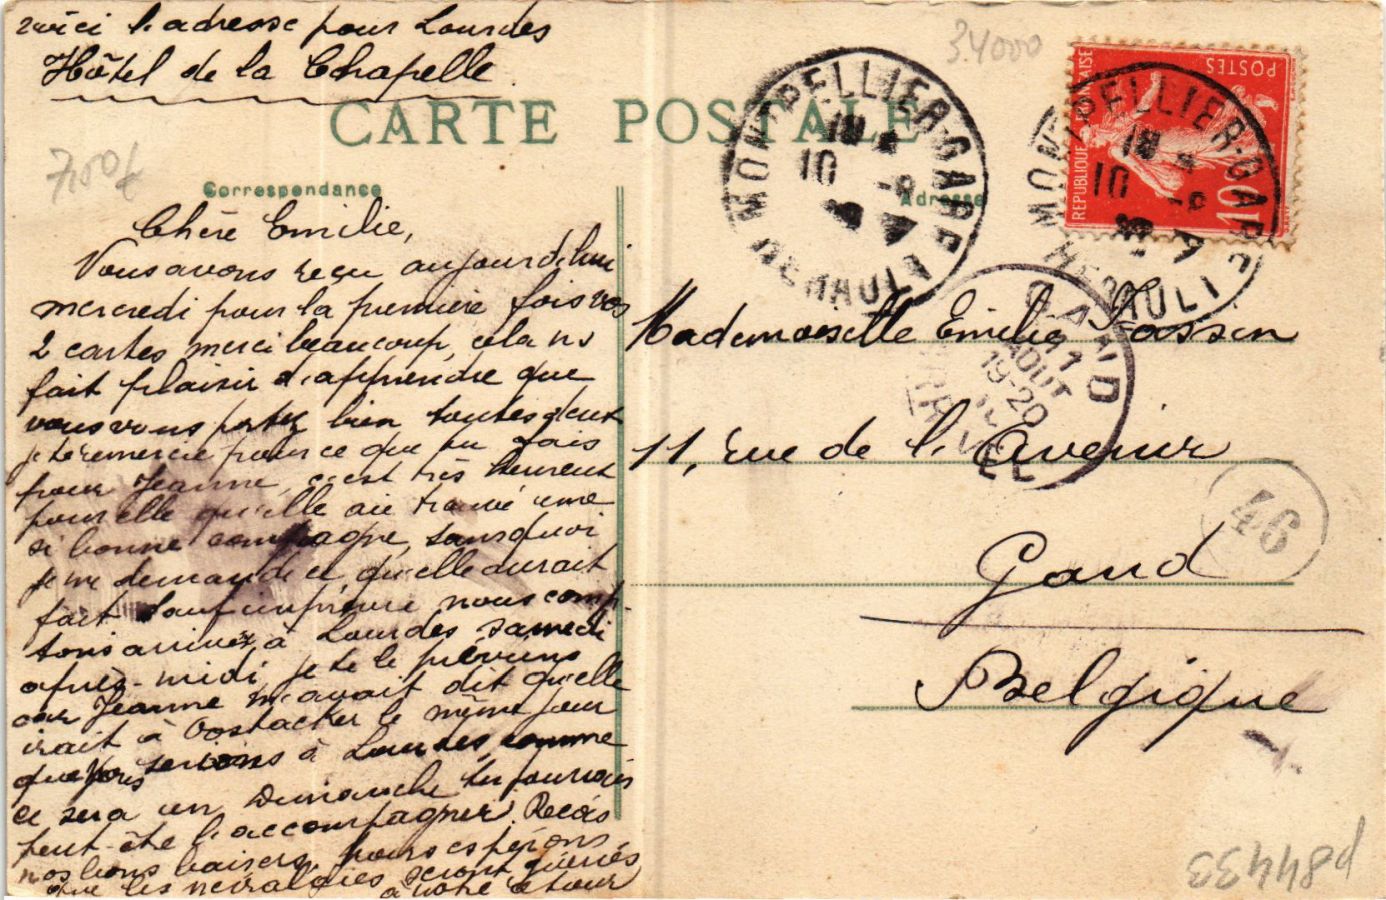 voici l'adresse pour Lourdes
Hôtel de la Chapelle
CARTE POSTALE
34000
7,50f
Correspondance
Adresse
Chère Emilie,
Vous avons reçu aujourd'hui
mercredi pour la première fois vos
2 cartes merci beaucoup, cela ns
fait plaisir d'apprendre que
vous vous portez bien toutes deux
je te remercie pour ce que tu fais
pour Jeanne, c'est très heureux
pour elle qu'elle aie trouvé une
si bonne compagne, sans quoi
je me demande ce qu'elle aurait
fait. Sauf imprévu nous comp-
tons arriver à Lourdes samedi
après-midi je te le préviens
car Jeanne m'avait dit qu'elle
irait à Oostacker le même jour
que nous serions à Lourdes, comme
ce sera un Dimanche tu pourrais
peut-être l'accompagner. Reçois
nos bons baisers, nous espérons
que les névralgies seront guéries
à notre retour
MONTPELLIER-GARE
HERAULT
18
10 -8
REPUBLIQUE FRANÇAISE
POSTES
10
MONTPELLIER-GARE
HERAULT
18
10 -8
GAND
11
AOUT
19-20
Mademoiselle Emilie Fossen
11, rue de l'Avenir
Gand
Belgique
46
p84433